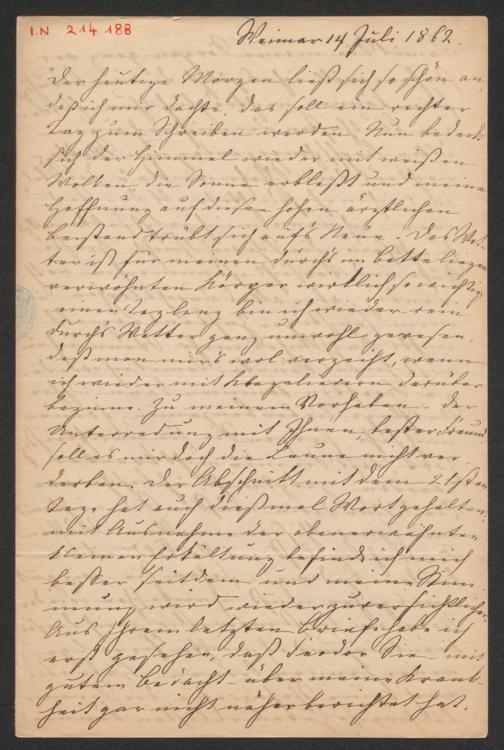 I.N 214.188
Weimar 14 Juli 1862.
Der heutige Morgen ließ sich so schön an,
daß ich mir dachte, das soll ein rechter
Tag zum Schreiben werden. Nun bedeckt
sich der Himmel wieder mit weißen
Wolken, die Sonne erblaßt und meine
Hoffnung auf diesen hohen ärztlichen
Beistand trübt sich auf's Neue. Das Wet-
ter ist für meinen durch's im Bette liegen
verwöhnten Körper wirklich so wichtig,
einen Tag lang bin ich wieder rein
durch's Wetter ganz unwohl gewesen.
daß man mir's wol verzeiht, wenn
ich wieder mit darüber
beginne. Zu meinem Vorhaben der
Unterredung mit Ihnen, bester Freund
soll es mir doch die Laune nicht ver
derben. Der Abschnitt mit dem 21sten
Tage hat auch dießmal Wort gehalten,
mit Ausnahme der obenerwähnten
kleinen Erkältung befinde ich mich
besser seitdem und meine Stim
mung wird wieder zuversichtlicher.
Aus Ihrem letzten Briefe habe ich
erst gesehen, daß Feodor Sie – mit
gutem Bedacht – über meine Krank-
heit gar nicht näher berichtet hat.